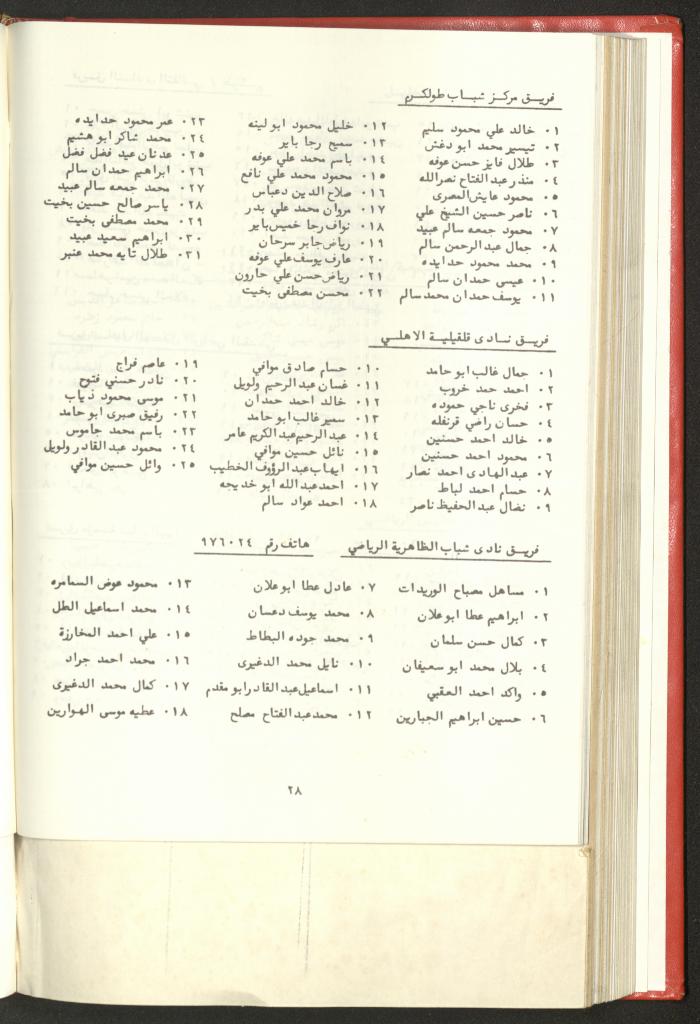 فريق مركز شباب طولكرم
٠١ خالد علي محمود سليم
٠٢ تيسير محمد ابو دغش
٠٣ طلال فايز حسن عوفه
٠٤ منذر عبد الفتاح نصرالله
٠٥ محمود عايش المصرى
٠٦ ناصر حسين الشيخ علي
٠٧ محمود جمعه سالم عبيد
٠٨ جمال عبد الرحمن سالم
٠٩ محمد محمود حدايده
٠١٠ عيسى حمدان سالم
٠١١ يوسف حمدان محمد سالم
٠١٢ خليل محمود ابو لينه
٠١٣ سميح رجا باير
٠١٤ باسم محمد علي عوفه
٠١٥ محمود محمد علي نافع
٠١٦ صلاح الدين دعباس
٠١٧ مروان محمد علي بدر
٠١٨ نواف رجا خميس باير
٠١٩ رياض جابر سرحان
٠٢٠ عارف يوسف علي عوفه
٠٢١ رياض حسن علي حارون
٠٢٢ محسن مصطفى بخيت
٠٢٣ عمر محمود حدايده
٠٢٤ محمد شاكر ابو هشيم
٠٢٥ عدنان عيد فضل فضل
٠٢٦ ابراهيم حمدان سالم
٠٢٧ محمد جمعه سالم عبيد
٠٢٨ ياسر صالح حسين بخيت
٠٢٩ محمد مصطفى بخيت
٠٣٠ ابراهيم سعيد عبيد
٠٣١ طلال تايه محمد عنبر
فريق نادى قلقيلية الاهلي
٠١ جمال غالب ابو حامد
٠٢ احمد حمد خروب
٠٣ فخرى ناجي حموده
٠٤ حسان راضي قرنفله
٠٥ خالد احمد حسنين
٠٦ محمود احمد حسنين
٠٧ عبد الهادى احمد نصار
٠٨ حسام احمد لباط
٠٩ نضال عبد الحفيظ ناصر
٠١٠ حسام صادق موافي
٠١١ غسان عبد الرحيم ولويل
٠١٢ خالد احمد حمدان
٠١٣ سمير غالب ابو حامد
٠١٤ عبد الرحيم عبد الكريم عامر
٠١٥ نائل حسين موافي
٠١٦ ايهاب عبد الرؤوف الخطيب
٠١٧ احمد عبد الله ابو خديجه
٠١٨ احمد عواد سالم
٠١٩ عاصم فراج
٠٢٠ نادر حسني فتوح
٠٢١ موسى محمود ذياب
٠٢٢ رفيق صبرى ابو حامد
٠٢٣ باسم محمد جاموس
٠٢٤ محمود عبد القادر ولويل
٠٢٥ وائل حسين موافي
فريق نادى شباب الظاهرية الرياضي هاتف رقم ٩٧٦٠٢٤
٠١ مساهل مصباح الوريدات
٠٢ ابراهيم عطا ابو علان
٠٣ كمال حسن سلمان
٠٤ بلال محمد ابو سعيفان
٠٥ واكد احمد العقبي
٠٦ حسين ابراهيم الجبارين
٠٧ عادل عطا ابو علان
٠٨ محمد يوسف دعسان
٠٩ محمد جوده البطاط
٠١٠ نايل محمد الدغيرى
٠١١ اسماعيل عبد القادر ابو مقدم
٠١٢ محمد عبد الفتاح مصلح
٠١٣ محمود عوض السمامره
٠١٤ محمد اسماعيل الطل
٠١٥ علي احمد المخارزة
٠١٦ محمد احمد جراد
٠١٧ كمال محمد الدغيرى
٠١٨ عطيه موسى الهوارين
٢٨